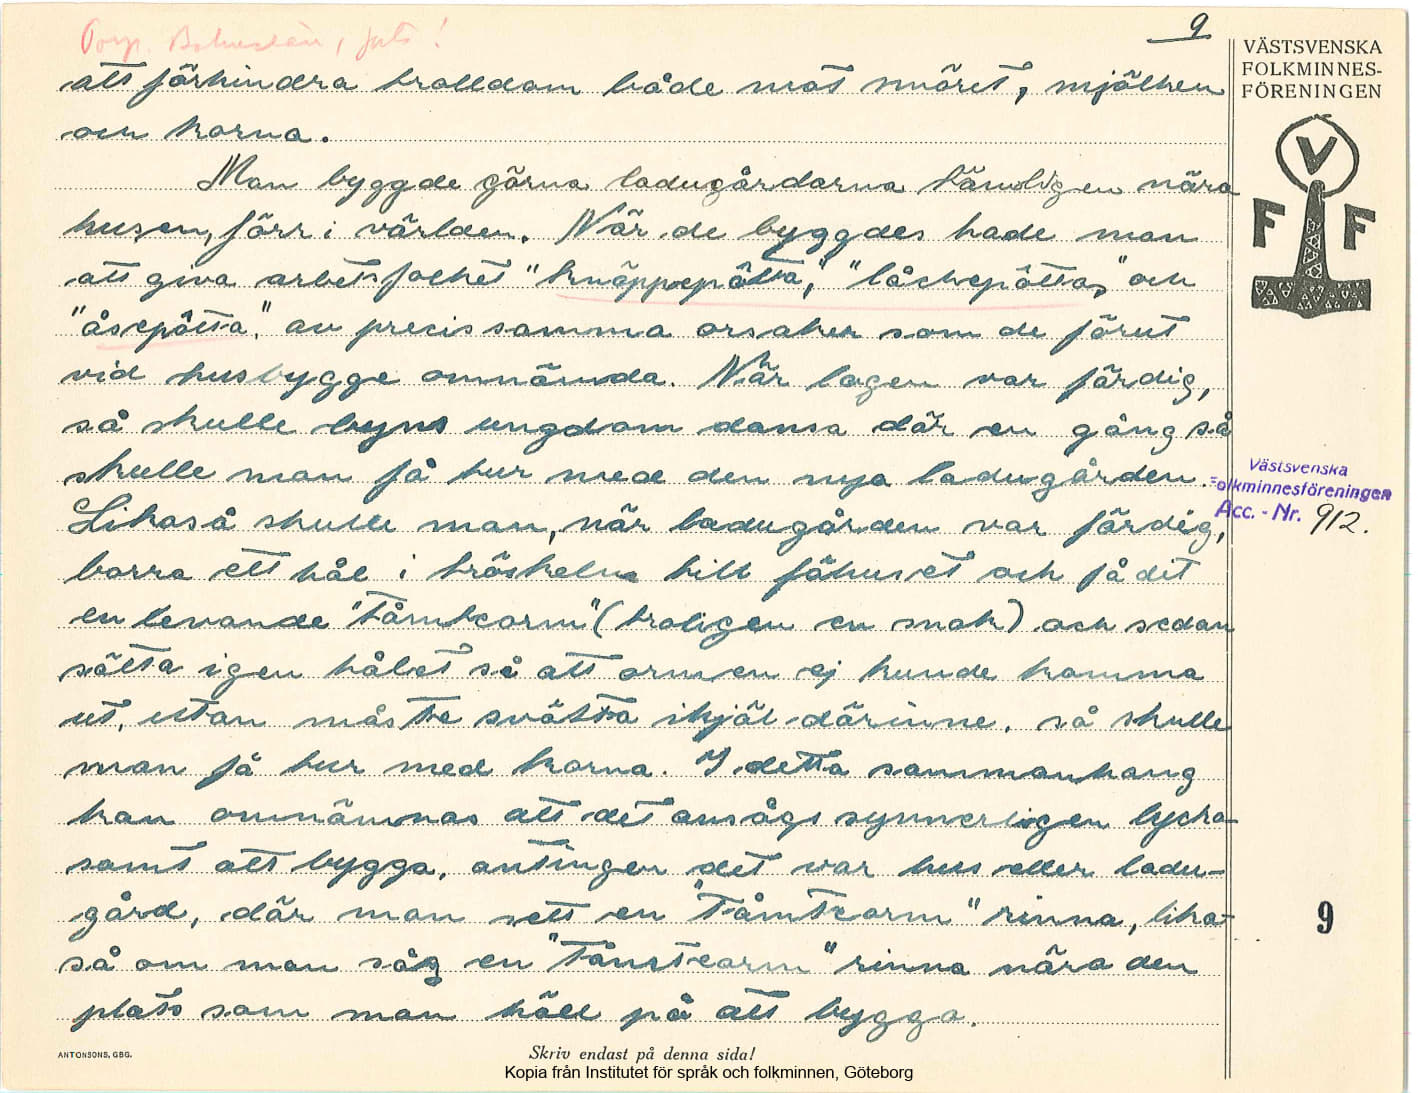 Torp. Bohuslän,
9
VÄSTSVENSKA
FOLKMINNES-
FÖRENINGEN
V
F F
att förhindra trolldom både mot smöret, mjölken
och korna.
Man byggde gärna ladugårdarna tämligen nära
husen, förr i världen. När de byggdes hade man
att giva arbetsfolket "knäppepötta," "låckepötta," och
"åsepötta," av precis samma orsaker som de förut
vid husbygge omnämnda. När lagen var färdig,
så skulle byns ungdom dansa där en gång så
skulle man få tur med den nya ladugården.
Likaså skulle man, när ladugården var färdig,
borra ett hål i tröskeln till fähuset och få dit
en levande "Tåmteorm" (troligen en snok) och sedan
sätta igen hålet så att ormen ej kunde komma
ut, utan måste svälta ihjäl därinne, så skulle
man få tur med korna. I detta sammanhang
kan omnämnas att det ansågs synnerligen lycko-
samt att bygga, antingen det var hus eller ladu-
gård, där man sett en "Tåmteorm" rinna, lika-
så om man såg en "Tåmteorm" rinna nära den
plats som man höll på att bygga.
Västsvenska
Folkminnesföreningen
Acc. - Nr. 912.
9
ANTONSONS, GBG.
Skriv endast på denna sida!
Kopia från Institutet för språk och folkminnen, Göteborg